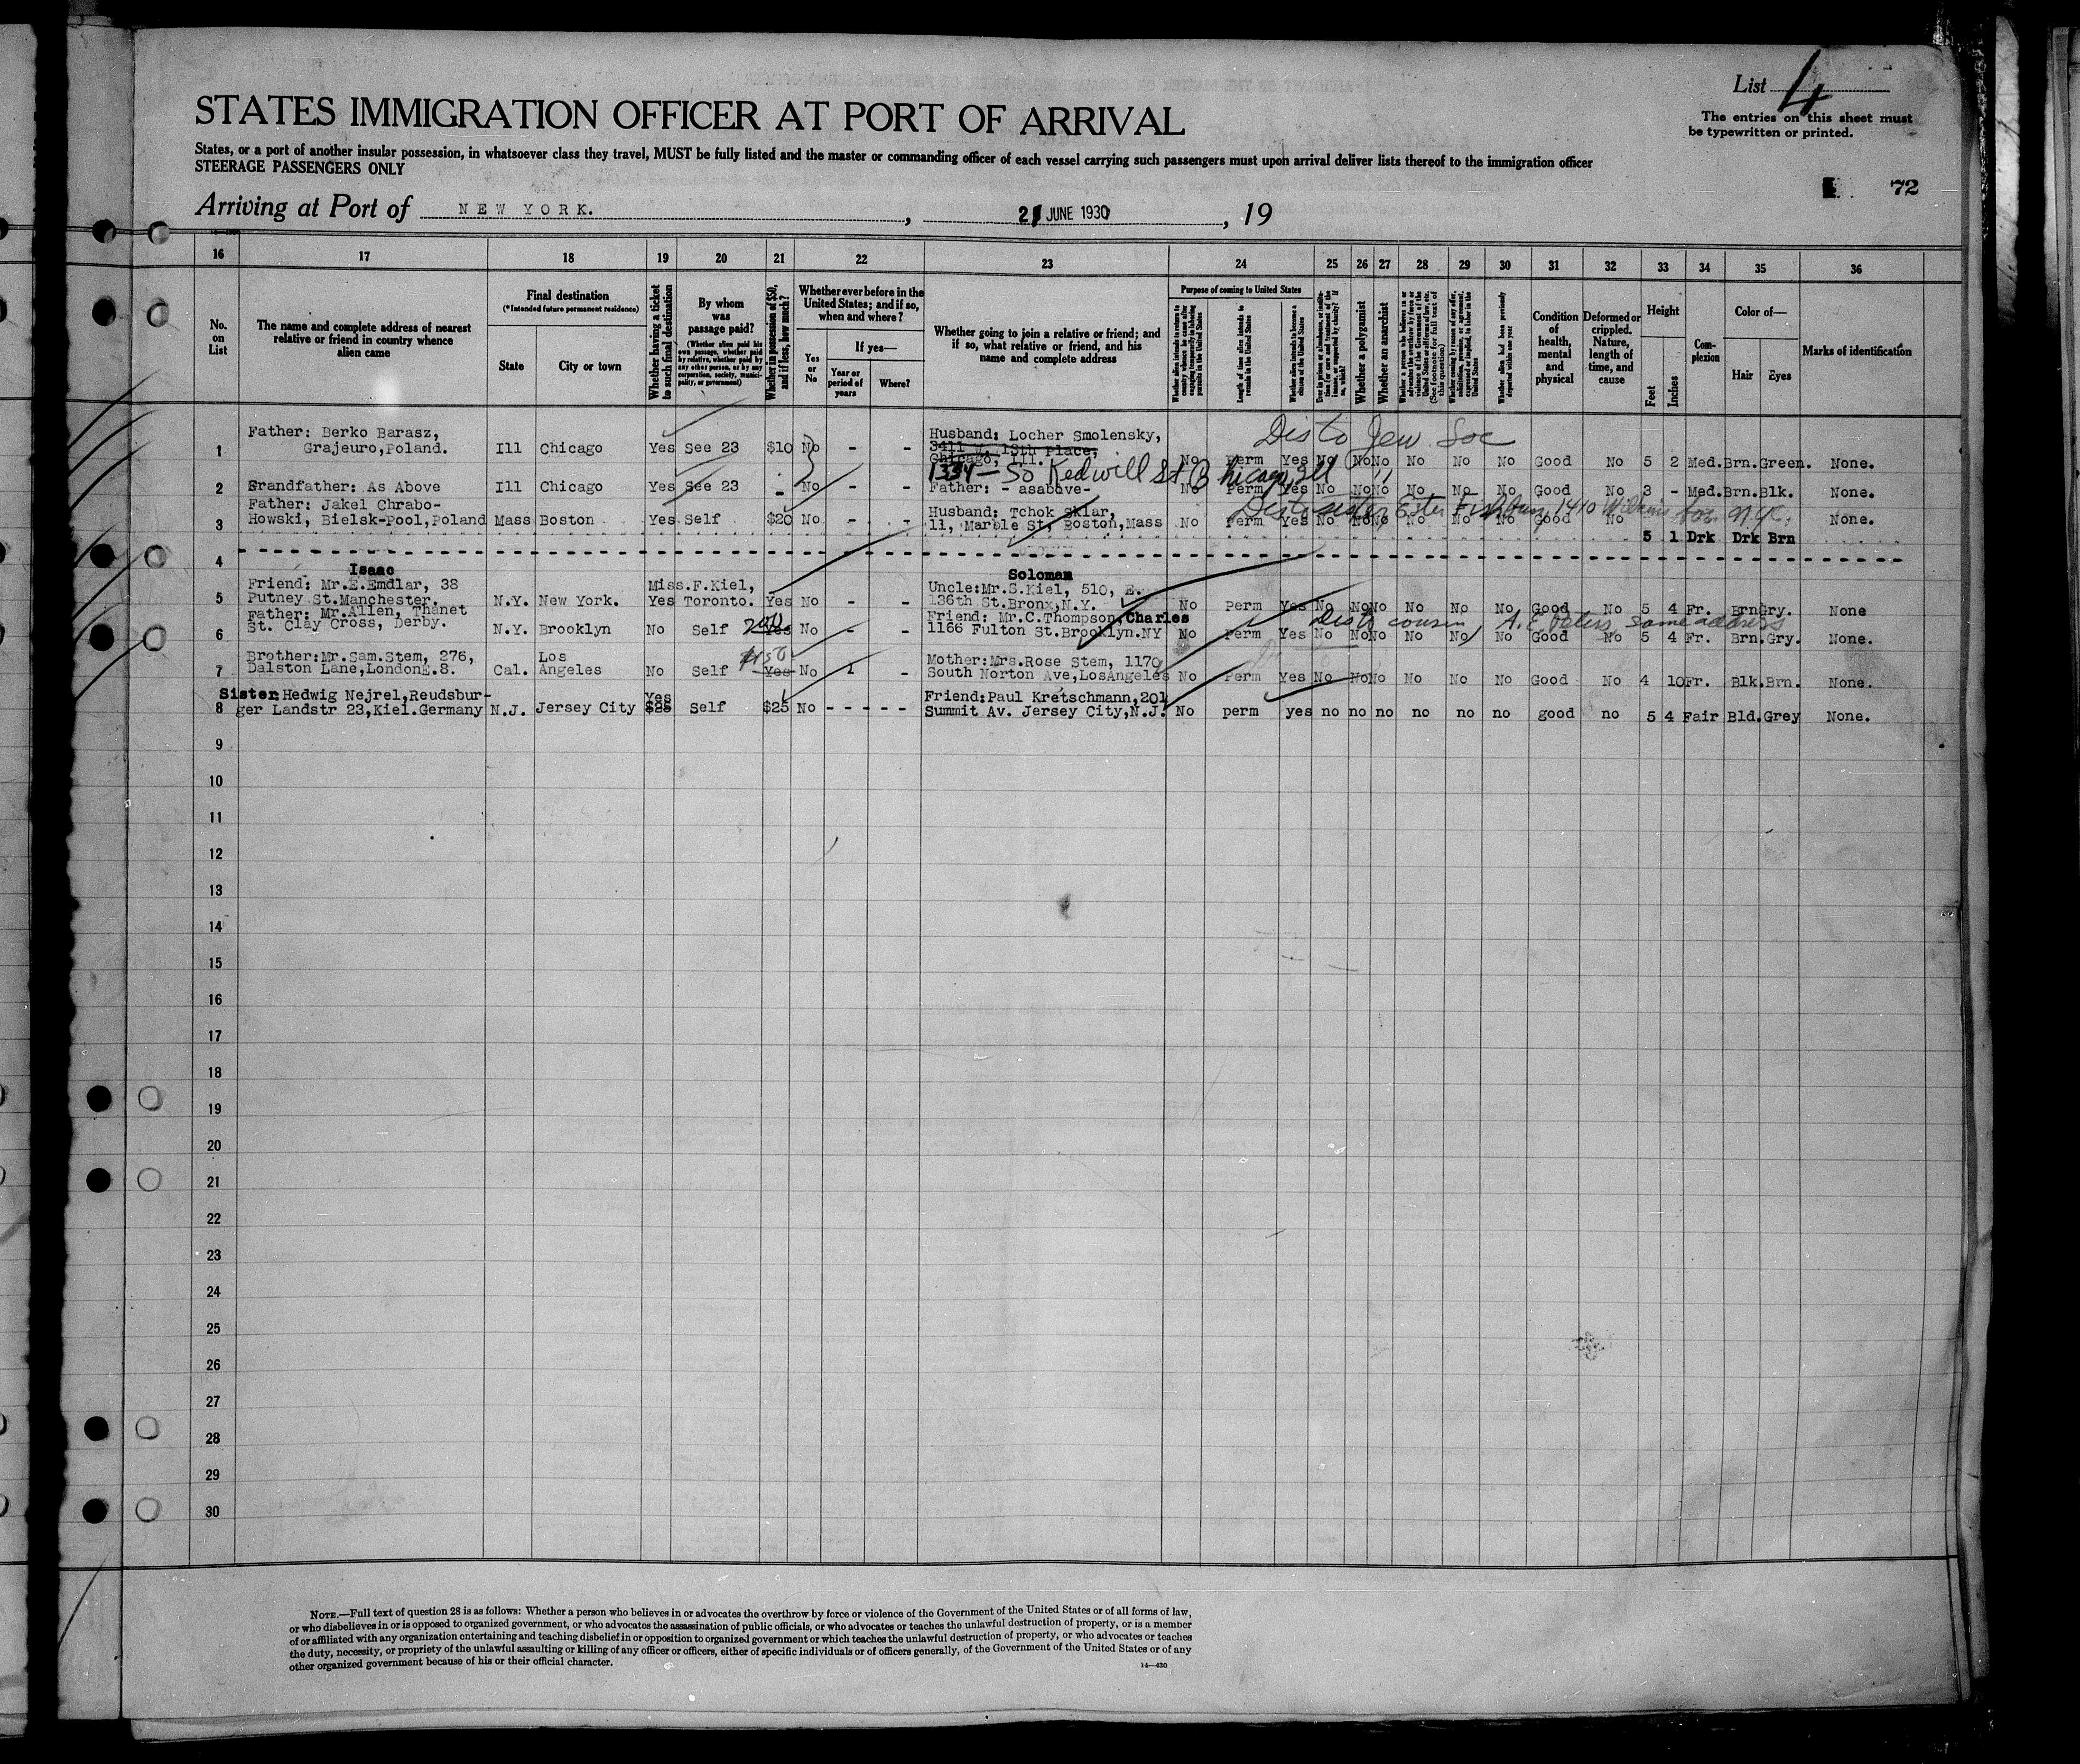 List 4
The entries on this sheet must
be typewritten or printed.
STATES IMMIGRATION OFFICER AT PORT OF ARRIVAL
States, or a port of another insular possession, in whatsoever class they travel, MUST be fully listed and the master or commanding officer of each vessel carrying such passengers must upon arrival deliver lists thereof to the immigration officer
STEERAGE PASSENGERS ONLY
72
Arriving at Port of NEW YORK. , 21 JUNE 1930 , 19
16 17 18 19 20 21 22 23 24 25 26 27 28 29 30 31 32 33 34 35 36
No. on List
The name and complete address of nearest
relative or friend in country whence
alien came
Final destination
(*Intended future permanent residence)
State City or town
Whether having a ticket to such final destination
By whom was passage paid?
(Whether alien paid his own passage, whether paid by relative, whether paid by any other person, or by any corporation, society, municipality, or government)
Whether in possession of $50, and if less, how much?
Whether ever before in the
United States; and if so,
when and where?
Yes or No
If yes—
Year or period of years
Where?
Whether going to join a relative or friend; and
if so, what relative or friend, and his
name and complete address
Purpose of coming to United States
Length of time alien intends to remain in the United States
Whether alien intends to become a citizen of the United States
Whether a polygamist
Whether an anarchist
Condition of health, mental and physical
Deformed or crippled. Nature, length of time, and cause
Height
Feet Inches
Complexion
Color of—
Hair Eyes
Marks of identification
Father: Berko Barasz, Husband: Locher Smolensky, Dis to Jew Soc
1 Grajeuro,Poland. Ill Chicago Yes See 23 $10 No - - 3411 W. 13th Place,
Chicago, Ill. No Perm Yes No No No No No No Good No 5 2 Med. Brn. Green. None.
1334 So Kedwill St Chicago Ill
2 Grandfather: As Above Ill Chicago Yes See 23 - No - - Father: - asabove- No Perm Yes No No No No No No Good No 3 - Med. Brn. Blk. None.
Father: Jakel Chrabo- Husband: Tchok Sklar, Dis to sister Ester
3 Howski, Bielsk-Pool,Poland Mass Boston Yes Self $20 No - - 11, Marble St, Boston,Mass No Perm Yes No No No No No No Good No None.
5 1 Drk Drk Brn
4
Isaac Soloman
Friend: Mr.E.Emdlar, 38 Miss.F.Kiel, Uncle:Mr.S.Kiel, 510, E.
5 Putney St.Manchester. N.Y. New York. Yes Toronto. Yes No - - 136th St.Bronx,N.Y. No Perm Yes No No No No No No Good No 5 4 Fr. Brn Gry. None
Father: Mr.Allen, Thanet Friend: Mr.C.Thompson,Charles Dis to cousin, A. E. Peters same address
6 St. Clay Cross, Derby. N.Y. Brooklyn No Self 200 Yes No - - 1166 Fulton St.Brooklyn.NY No Perm Yes No No No No No No Good No 5 4 Fr. Brn. Gry. None.
Brother:Mr.Sam.Stem, 276, Los $150 Mother:Mrs.Rose Stem, 1170
7 Dalston Lane,LondonE.8. Cal. Angeles No Self Yes No - - South Norton Ave,LosAngeles No Perm Yes No No No No No No Good No 4 10 Fr. Blk. Brn. None.
Sister Hedwig Nejrel,Reudsbur- Yes Friend:Paul Kretschmann,201
8 ger Landstr 23,Kiel.Germany N.J. Jersey City $25 Self $25 No - - - - - Summit Av. Jersey City,N.J. No perm yes no no no no no no good no 5 4 Fair Bld. Grey None.
9
10
11
12
13
14
15
16
17
18
19
20
21
22
23
24
25
26
27
28
29
30
NOTE.—Full text of question 28 is as follows: Whether a person who believes in or advocates the overthrow by force or violence of the Government of the United States or of all forms of law,
or who disbelieves in or is opposed to organized government, or who advocates the assassination of public officials, or who advocates or teaches the unlawful destruction of property, or is a member
of or affiliated with any organization entertaining and teaching disbelief in or opposition to organized government or which teaches the unlawful destruction of property, or who advocates or teaches
the duty, necessity, or propriety of the unlawful assaulting or killing of any officer or officers, either of specific individuals or of officers generally, of the Government of the United States or of any
other organized government because of his or their official character.
14—430